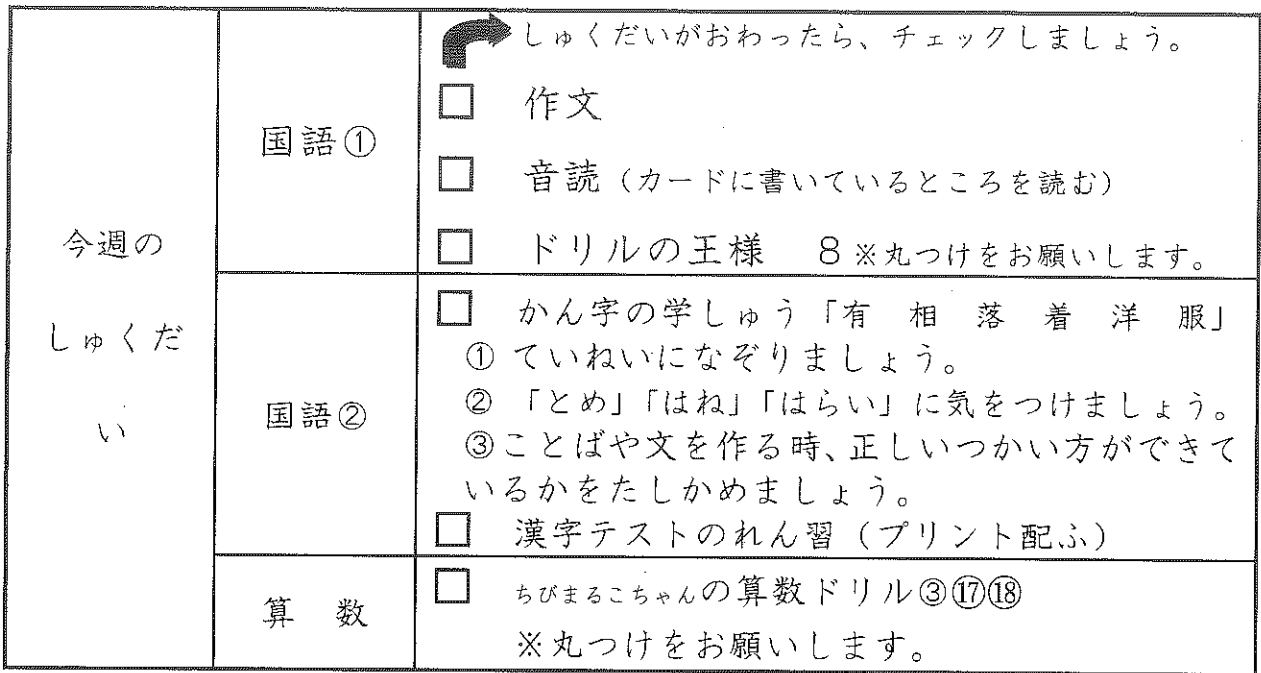 今週の
しゅくだ
い
国語①
しゅくだいがおわったら、チェックしましょう。
□ 作文
□ 音読（カードに書いているところを読む）
□ ドリルの王様 8 ※丸つけをお願いします。
国語②
□ かん字の学しゅう「有 相 落 着 洋 服」
① ていねいになぞりましょう。
② 「とめ」「はね」「はらい」に気をつけましょう。
③ことばや文を作る時、正しいつかい方ができて
いるかをたしかめましょう。
□ 漢字テストのれん習（プリント配ふ）
算 数
□ ちびまるこちゃんの算数ドリル③⑰⑱
※丸つけをお願いします。